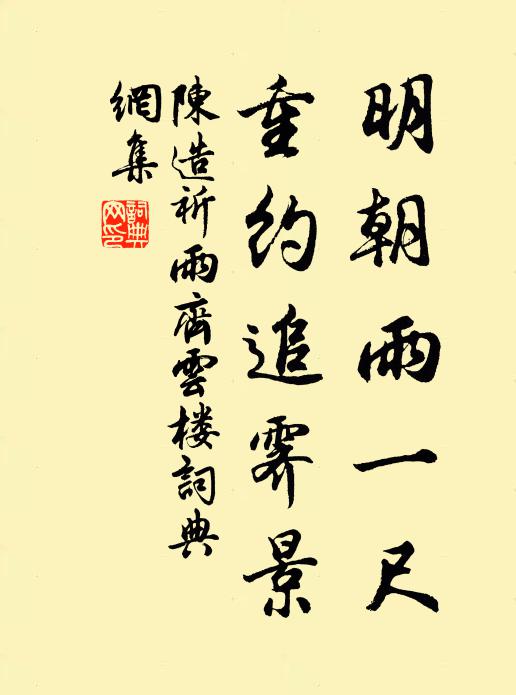 明朝雨一尺
重約追霽景
陳造祈雨齊雲楼詞典
網集
詞典
网印